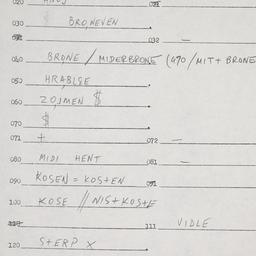 020
030 $ BRONEVEN
032 —
040 BRONE / MIDERBRONE (470 / MIT + BRONE
050 HRABLJE
060 ZOJMEN $
070 $
071 + 072 —
080 MIDI HENT 081 —
090 KOSEN = KOSTEN 091
100 KOSE // NIS+KOSTE
111 VIDLE
120 STERP X